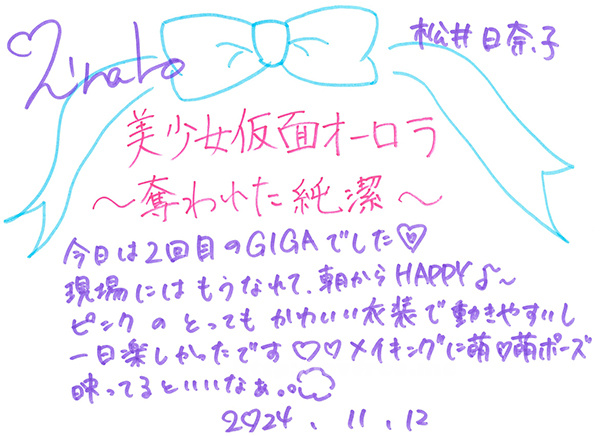 松井日奈子
美少女仮面オーロラ
～奪われた純潔～
今日は2回目のGIGAでした♡
現場にはもうなれて、朝からHAPPY♪～
ピンクのとってもかわいい衣装で動きやすいし
一日楽しかったです♡♡メイキングに萌♡萌ポーズ
映ってるといいなぁ。。
2024.11.12